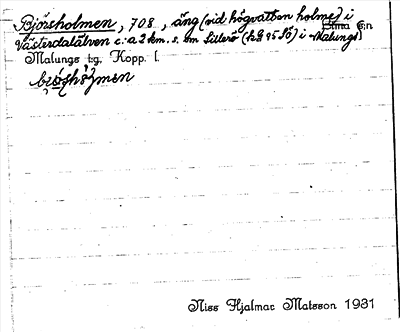 Björsholmen, 708, äng (vid högvatten holme) i
Västerdalälven c:a 2 km. s. om Lillerö (hg 95 Sö) i Malungs
Lima Sn
Malungs tg, Kopp. l.
Niss Hjalmar Matsson 1931